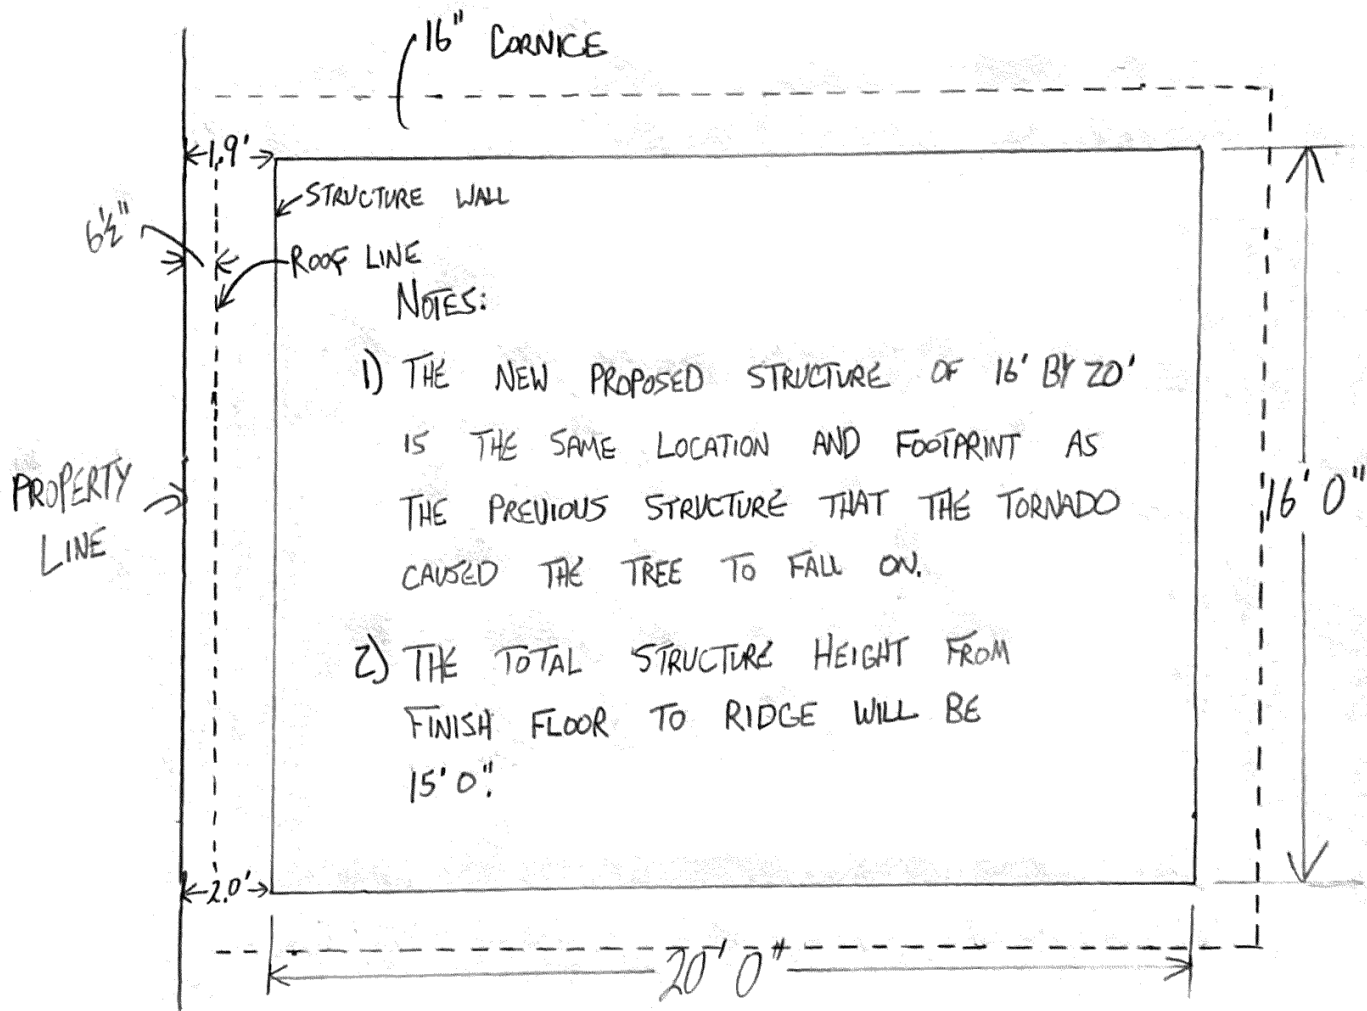 16" CORNICE
1.9'
STRUCTURE WALL
6½"
ROOF LINE
NOTES:
1) THE NEW PROPOSED STRUCTURE OF 16' BY 20'
IS THE SAME LOCATION AND FOOTPRINT AS
THE PREVIOUS STRUCTURE THAT THE TORNADO
CAUSED THE TREE TO FALL ON.
PROPERTY
LINE
16' 0"
2) THE TOTAL STRUCTURE HEIGHT FROM
FINISH FLOOR TO RIDGE WILL BE
15' 0".
2.0'
20' 0"